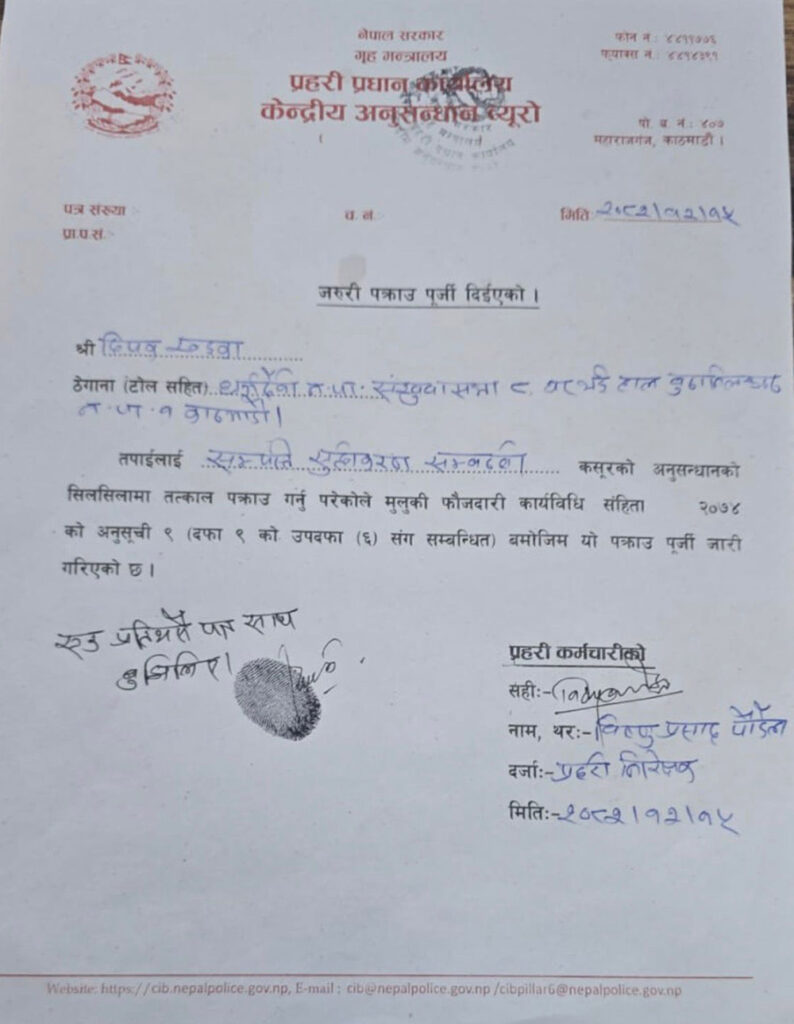 नेपाल सरकार
गृह मन्त्रालय
प्रहरी प्रधान कार्यालय
केन्द्रीय अनुसन्धान ब्यूरो
फोन नं.: ४४११७७६
फ्याक्स नं.:
पो. ब. नं.: ४०७
महाराजगंज, काठमाडौं ।
पत्र संख्या :-
च. नं.
मिति: २०८२।१२।१५
प्रा.प.सं.:-
जरुरी पक्राउ पूर्जी दिईएको ।
श्री दिपक खड्का
ठेगाना (टोल सहित) धर्मदेवी न.पा. संखुवासभा ८, टोल बुढानिलकण्ठ
न.पा. १ काठमाडौं।
तपाईलाई सम्पत्ति शुद्धीकरण सम्बन्धी कसूरको अनुसन्धानको
सिलसिलामा तत्काल पक्राउ गर्नु परेकोले मुलुकी फौजदारी कार्यविधि संहिता २०७४
को अनुसूची ९ (दफा ९ को उपदफा (६) संग सम्बन्धित) बमोजिम यो पक्राउ पूर्जी जारी
गरिएको छ ।
एक प्रति मैले साथ
बुझिलिए।
प्रहरी कर्मचारीको
सही:-
नाम, थर:- विष्णु प्रसाद पौडेल
दर्जा:- प्रहरी निरीक्षक
मिति:- २०८२।१२।१५
Website: https://cib.nepalpolice.gov.np, E-mail : cib@nepalpolice.gov.np /cibpillar6@nepalpolice.gov.np